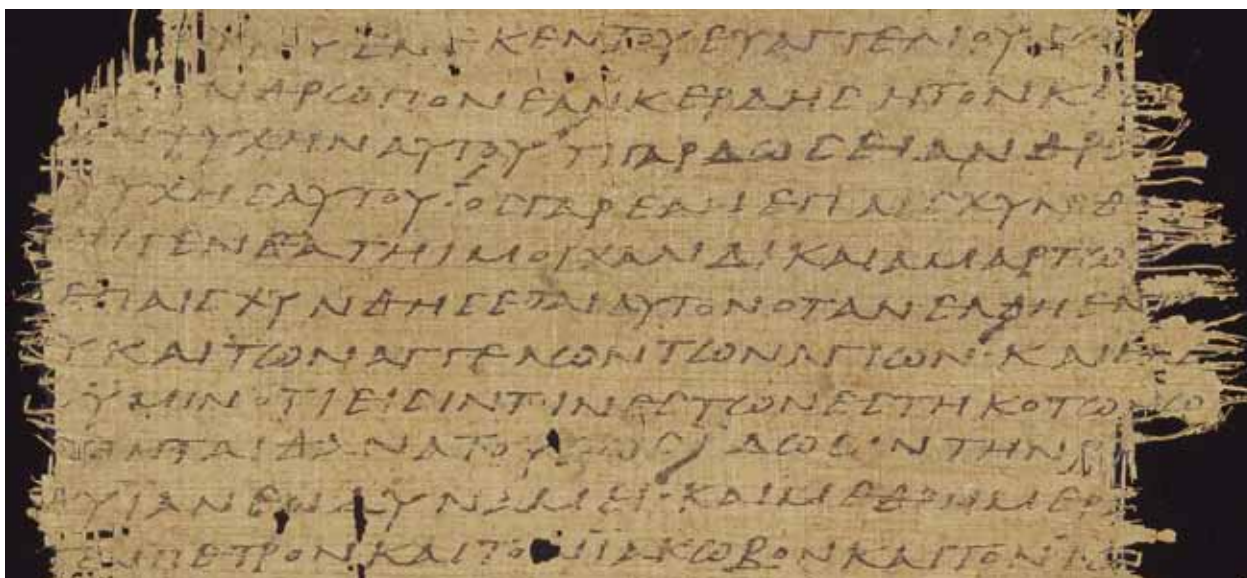 ΕΝΕΚΕΝ ΤΟΥ ΕΥΑΓΓΕΛΙΟΥ CΩ
ΕΑΝ ΚΕΡΔΗCΗ ΤΟΝ ΚΟC
ΨΥΧΗΝ ΑΥΤΟΥ ΤΙ ΓΑΡ ΔΩCΕΙ ΑΝΘΡΩ
ΨΥΧΗC ΑΥΤΟΥ· ΟC ΓΑΡ ΕΑΝ ΕΠΑΙCΧΥΝΘ
ΤΗΙ ΓΕΝΕΑ ΤΗΙ ΜΟΙΧΑΛΙΔΙ ΚΑΙ ΑΜΑΡΤΩ
ΕΠΑΙCΧΥΝΘΗCΕΤΑΙ ΑΥΤΟΝ ΟΤΑΝ ΕΛΘΗ ΕΝ
Υ ΚΑΙ ΤΩΝ ΑΓΓΕΛΩΝ ΤΩΝ ΑΓΙΩΝ· ΚΑΙ
ΥΜΙΝ ΟΤΙ ΕΙCΙΝ ΤΙΝΕC ΤΩΝ ΕCΤΗΚΟΤΩΝ
ΘΑΝΑΤΟΥ ΕΩC ΙΔΩCΙΝ ΤΗΝ
ΥΙΑΝ ΕΝ ΔΥΝΑΜΕΙ· ΚΑΙ ΜΕΘ ΗΜΕΡ
ΠΕΤΡΟΝ ΚΑΙ ΤΟΝ ΙΑΚΩΒΟΝ ΚΑΙ ΤΟΝ ΙΩ